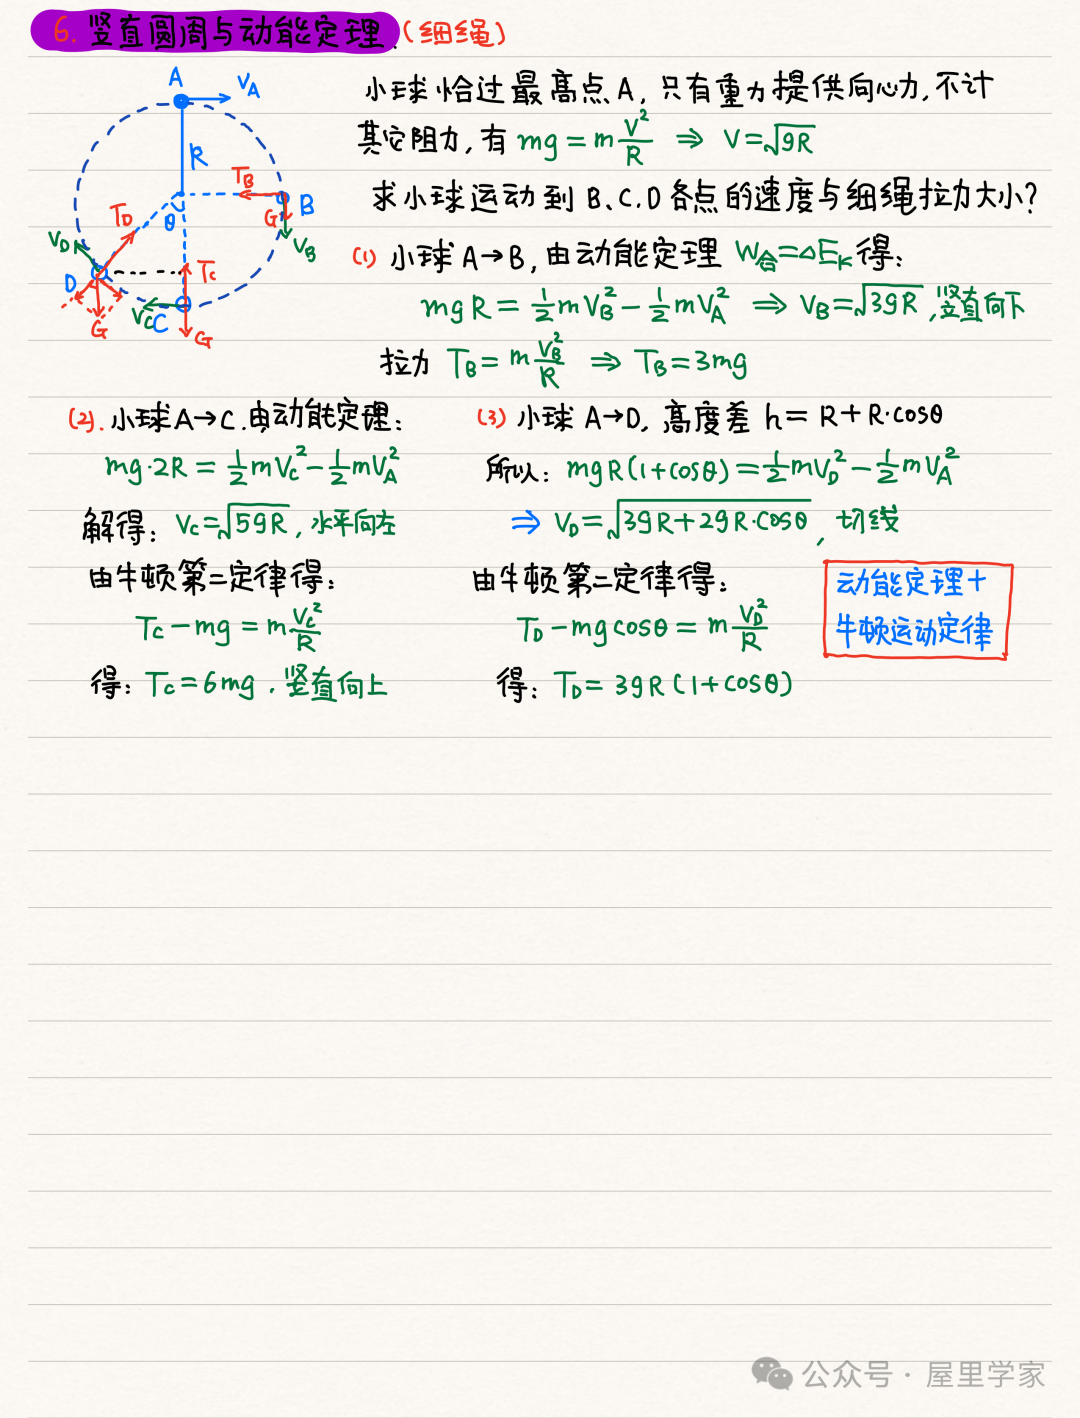 6. 竖直圆周与动能定理.(细绳)
A
V_A
R
T_B
B
G
V_B
θ
T_D
V_D
D
G
T_C
V_C
C
G
小球恰过最高点A,只有重力提供向心力,不计
其它阻力,有 mg = m V²/R ⇒ V=√gR
求小球运动到B、C、D各点的速度与细绳拉力大小?
(1) 小球A→B,由动能定理 W合=△E_K 得:
mgR = 1/2 mV_B² - 1/2 mV_A² ⇒ V_B=√3gR,竖直向下
拉力 T_B = m V_B²/R ⇒ T_B=3mg
(2). 小球A→C.由动能定理:
mg·2R = 1/2 mV_C² - 1/2 mV_A²
解得: V_C=√5gR,水平向左
由牛顿第二定律得:
T_C - mg = m V_C²/R
得: T_C = 6mg. 竖直向上
(3) 小球 A→D, 高度差 h = R+R·cosθ
所以: mgR(1+cosθ) = 1/2 mV_D² - 1/2 mV_A²
⇒ V_D=√3gR+2gR·cosθ, 切线
由牛顿第二定律得:
T_D - mgcosθ = m V_D²/R
得: T_D = 3gR(1+cosθ)
动能定理+
牛顿运动定律
公众号 · 屋里学家